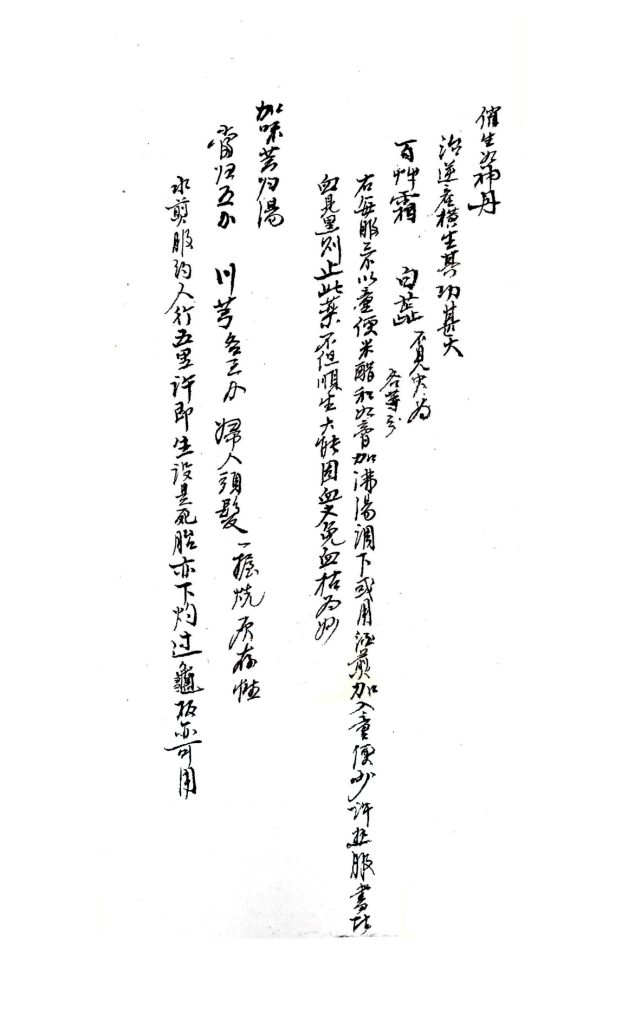 催生如神丹
治逆產橫生其功甚大
百艸霜 白芷 不見火為 各等分
右每服三不以童便米醋和如膏加沸湯調下或用酒煎加入童便少許热服書云
血見黑則止此葯不但順生大能固血又免血枯為妙
加味芎归湯
當归五分 川芎各三分 婦人頭髮一握燒灰存性
水煎服約人行五里許即生設是死胎亦下灼过龜板亦可用